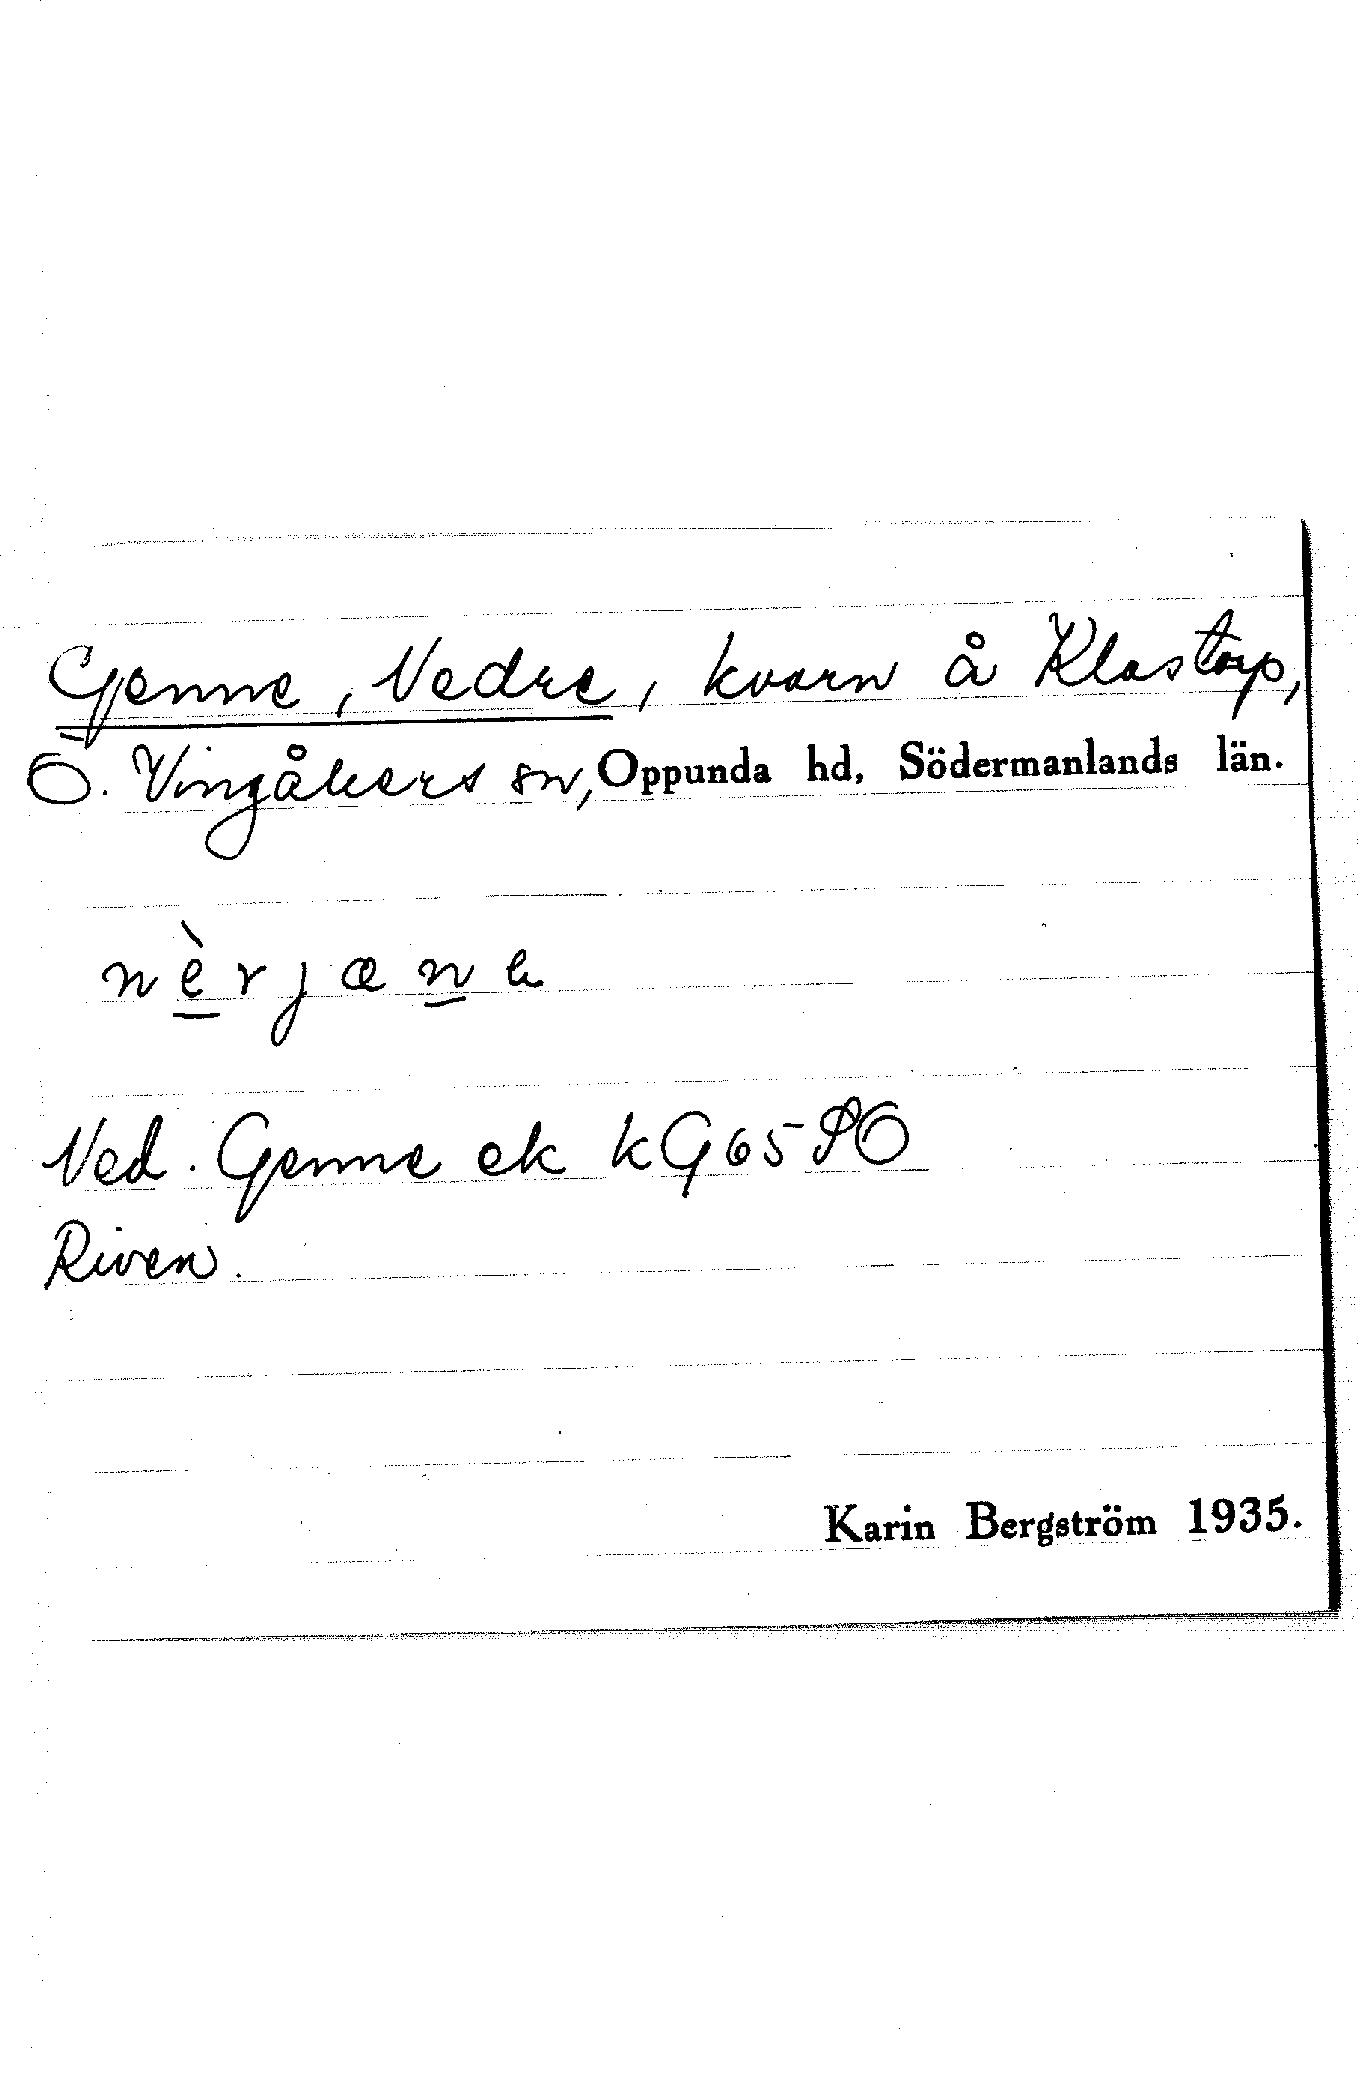 Genne, Nedre, kvarn å Klastorp,
Ö. Vingåkers sn, Oppunda hd, Södermanlands län.
nèrjænə
Ned. Genne ek kG65SO
Riven.
Karin Bergström 1935.